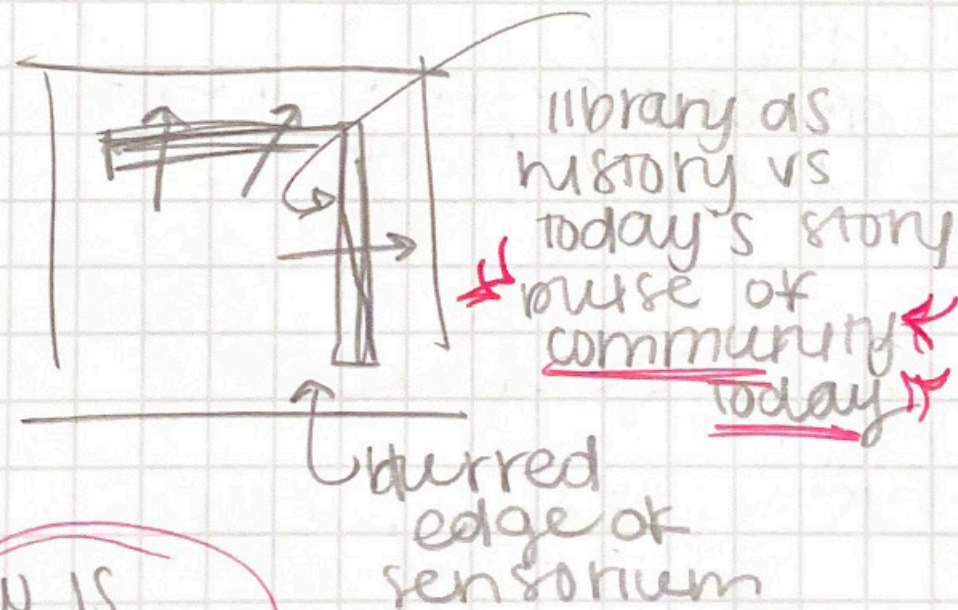 library as
history vs
today's story
pulse of
community
today
blurred
edge of
sensorium
is